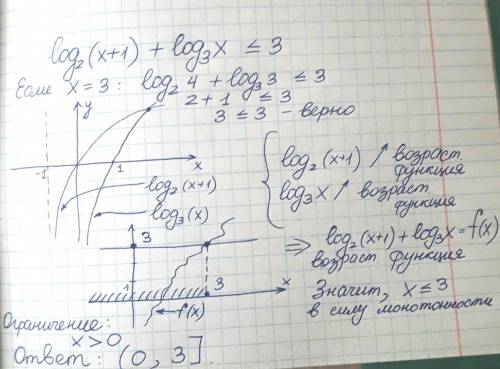 log₂(x+1) + log₃x ≤ 3
Если x = 3 : log₂4 + log₃3 ≤ 3
2 + 1 ≤ 3
3 ≤ 3 – верно
y
-1
1
x
log₂(x+1)
log₃(x)
log₂(x+1) ↗ возраст. функция
log₃x ↗ возраст. функция
⇒ log₂(x+1) + log₃x = f(x)
возраст. функция
3
1
3
x
f(x)
Значит, x ≤ 3
в силу монотонности
Ограничение:
x > 0
Ответ: (0, 3].